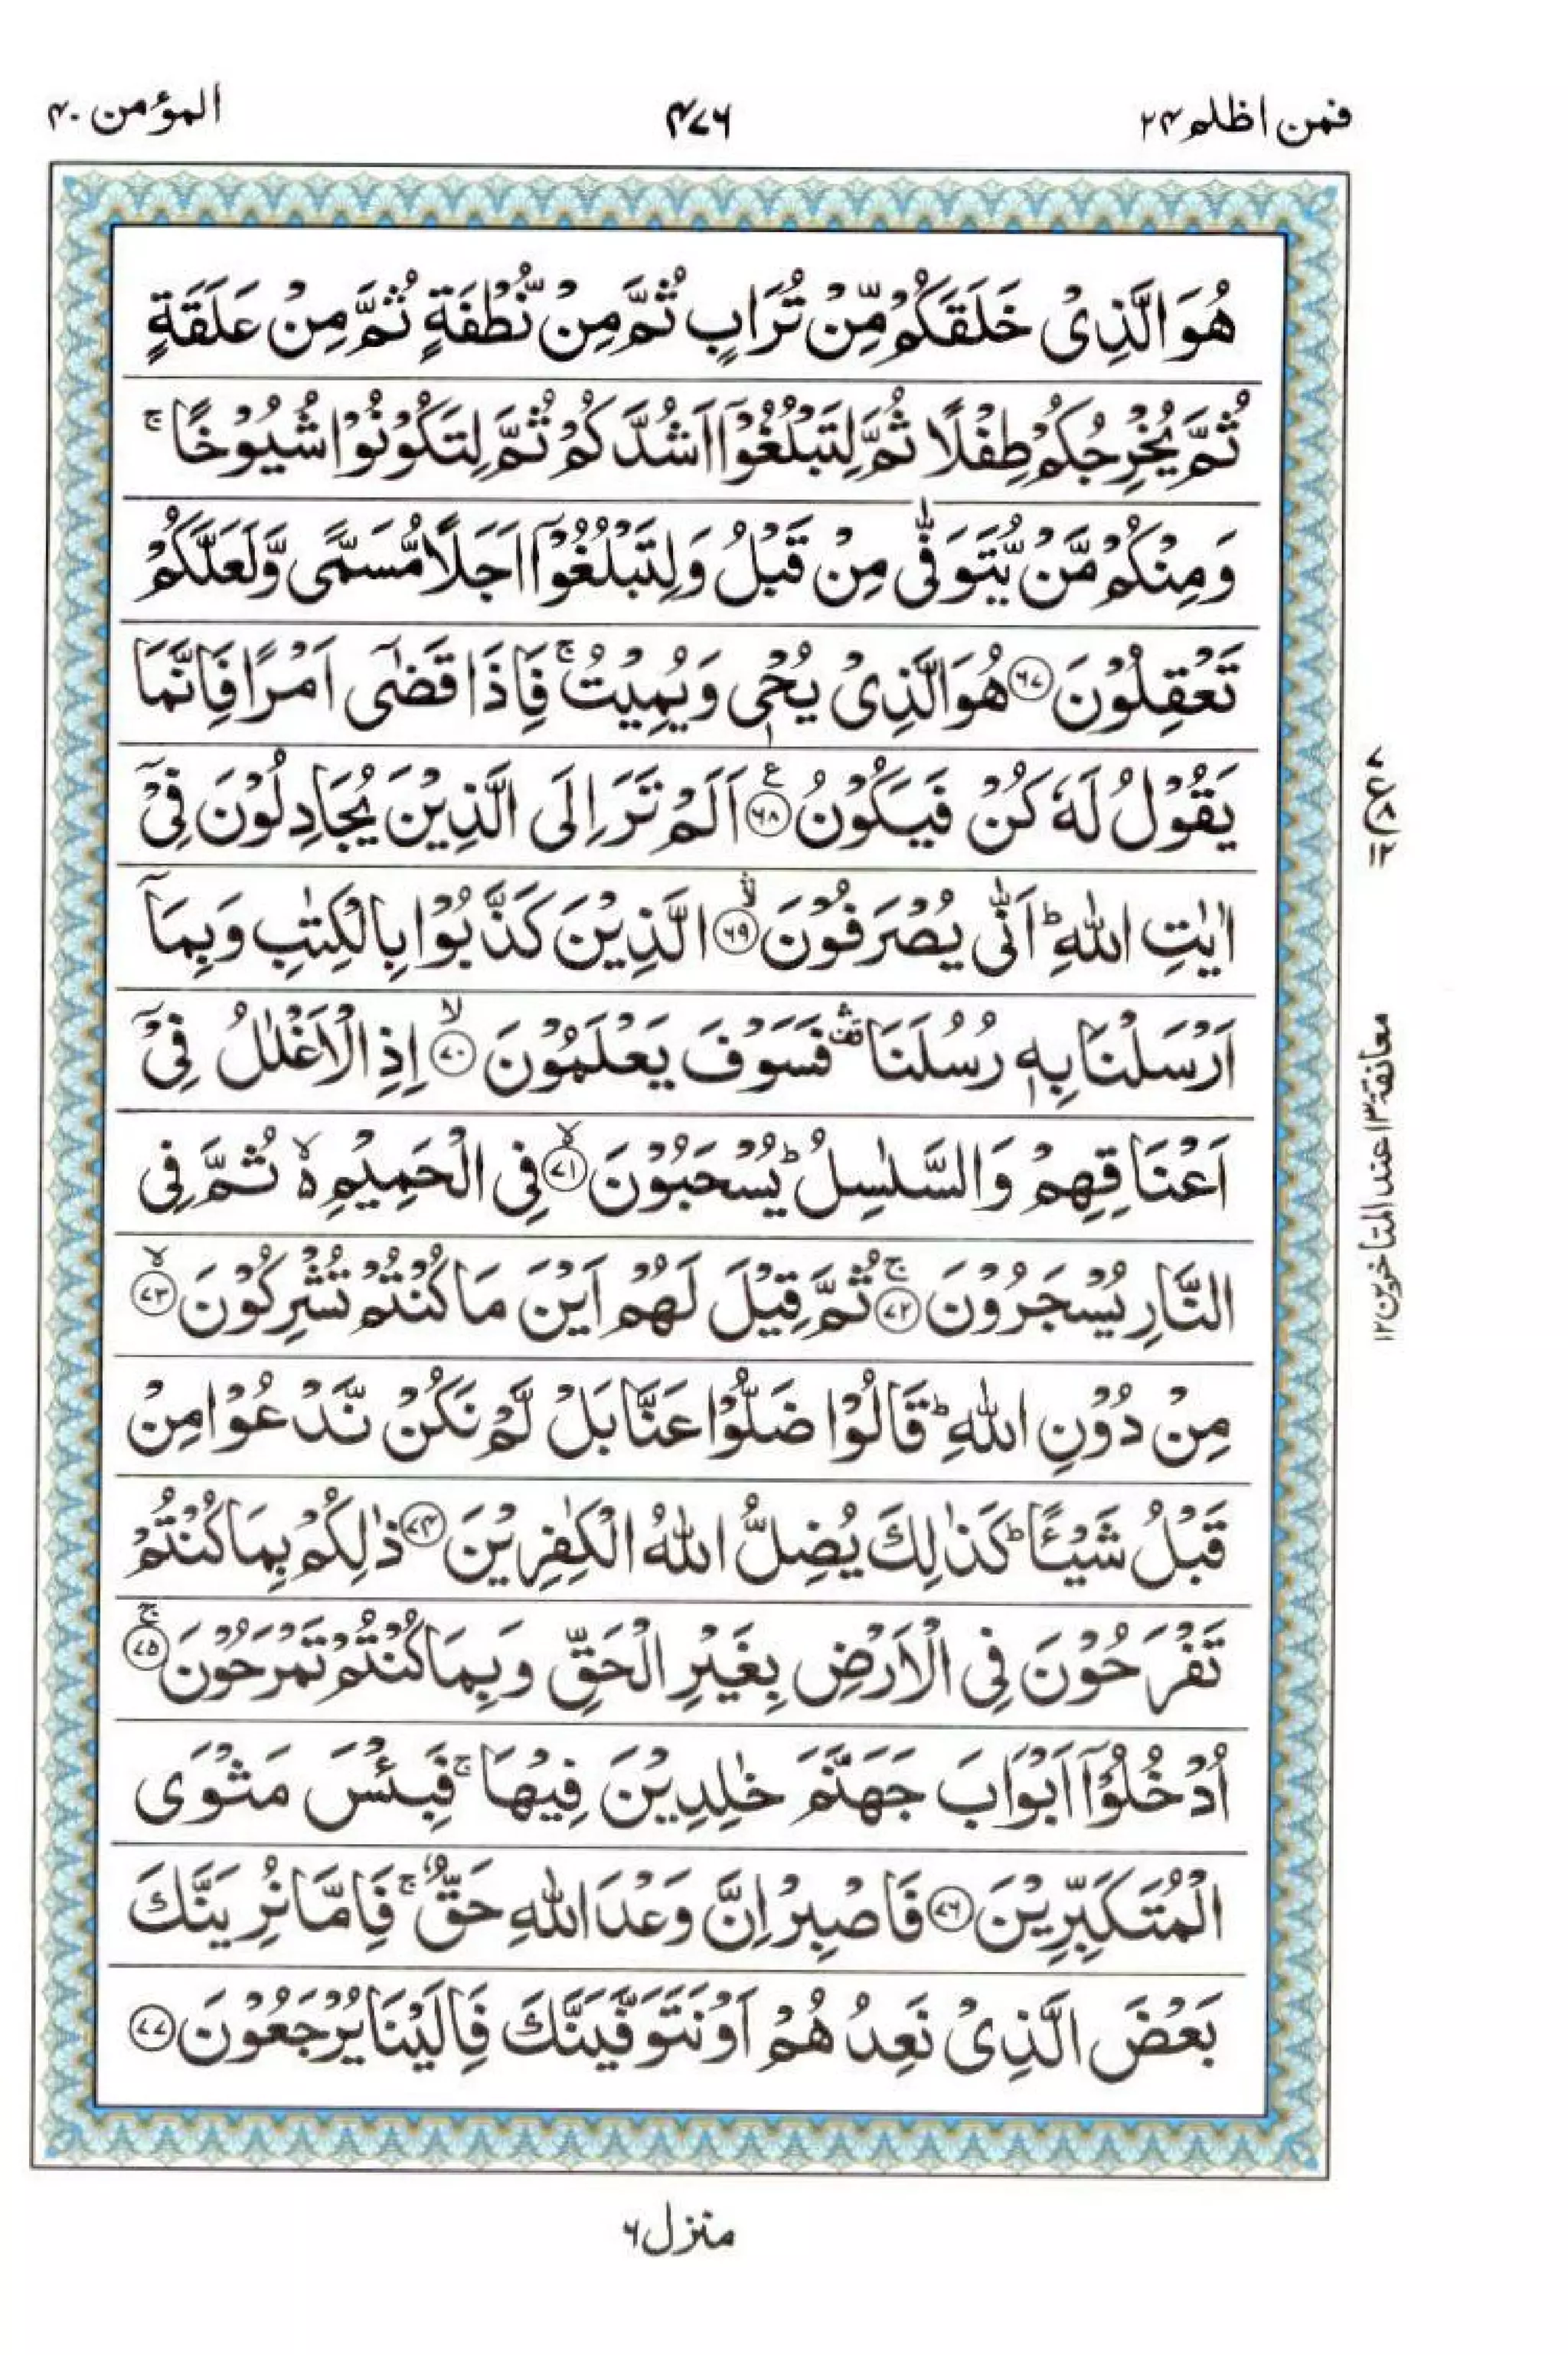 المؤمن ۴۰
۴۷۶
فمن اظلم ۲۴
هُوَ الَّذِیْ خَلَقَكُمْ مِّنْ تُرَابٍ ثُمَّ مِنْ نُّطْفَةٍ ثُمَّ مِنْ عَلَقَةٍ
ثُمَّ یُخْرِجُكُمْ طِفْلًا ثُمَّ لِتَبْلُغُوْۤا اَشُدَّكُمْ ثُمَّ لِتَكُوْنُوْا شُیُوْخًا ۚ
وَ مِنْكُمْ مَّنْ یُّتَوَفّٰی مِنْ قَبْلُ وَ لِتَبْلُغُوْۤا اَجَلًا مُّسَمًّی وَّ لَعَلَّكُمْ
تَعْقِلُوْنَ ۶۷ هُوَ الَّذِیْ یُحْیٖ وَ یُمِیْتُ ۚ فَاِذَا قَضٰۤی اَمْرًا فَاِنَّمَا
یَقُوْلُ لَهٗ كُنْ فَیَكُوْنُ ۶۸ ع اَلَمْ تَرَ اِلَی الَّذِیْنَ یُجَادِلُوْنَ فِیْۤ
اٰیٰتِ اللّٰهِ ؕ اَنّٰی یُصْرَفُوْنَ ۶۹ الَّذِیْنَ كَذَّبُوْا بِالْكِتٰبِ وَ بِمَاۤ
اَرْسَلْنَا بِهٖ رُسُلَنَا ۛ۫ فَسَوْفَ یَعْلَمُوْنَ ۷۰ ۙ اِذِ الْاَغْلٰلُ فِیْۤ
اَعْنَاقِهِمْ وَ السَّلٰسِلُ ؕ یُسْحَبُوْنَ ۷۱ ۙ فِی الْحَمِیْمِ ۙ ثُمَّ فِی
النَّارِ یُسْجَرُوْنَ ۷۲ ۚ ثُمَّ قِیْلَ لَهُمْ اَیْنَ مَا كُنْتُمْ تُشْرِكُوْنَ ۷۳ ۙ
مِنْ دُوْنِ اللّٰهِ ؕ قَالُوْا ضَلُّوْا عَنَّا بَلْ لَّمْ نَكُنْ نَّدْعُوْا مِنْ
قَبْلُ شَیْـًٔا ؕ كَذٰلِكَ یُضِلُّ اللّٰهُ الْكٰفِرِیْنَ ۷۴ ذٰلِكُمْ بِمَا كُنْتُمْ
تَفْرَحُوْنَ فِی الْاَرْضِ بِغَیْرِ الْحَقِّ وَ بِمَا كُنْتُمْ تَمْرَحُوْنَ ۷۵ ۚ
اُدْخُلُوْۤا اَبْوَابَ جَهَنَّمَ خٰلِدِیْنَ فِیْهَا ۚ فَبِئْسَ مَثْوَی
الْمُتَكَبِّرِیْنَ ۷۶ فَاصْبِرْ اِنَّ وَعْدَ اللّٰهِ حَقٌّ ۚ فَاِمَّا نُرِیَنَّكَ
بَعْضَ الَّذِیْ نَعِدُهُمْ اَوْ نَتَوَفَّیَنَّكَ فَاِلَیْنَا یُرْجَعُوْنَ ۷۷
۷
ع ۸
۱۲
معانقة ۱۳ عند المتاخرین ۱۲
منزل ۶